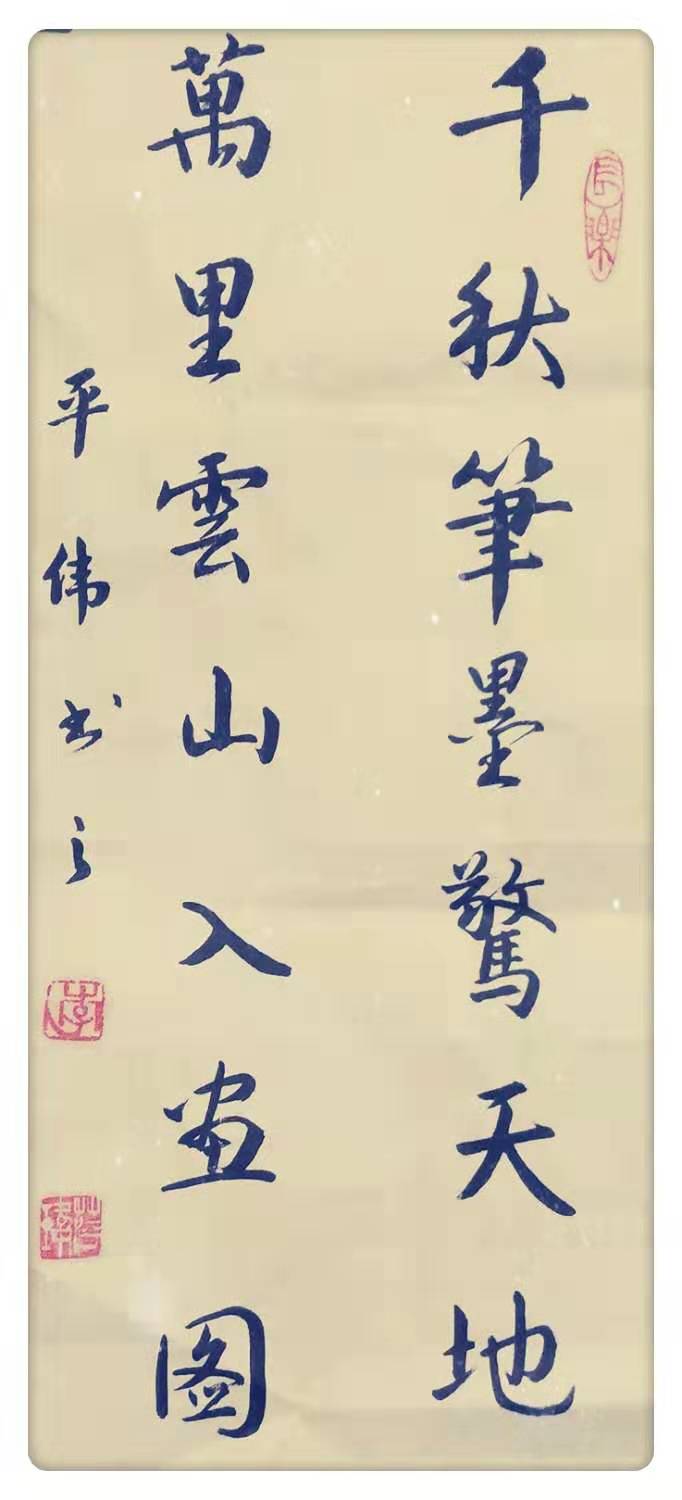 千秋筆墨驚天地
萬里雲山入畫图
平伟书之
長樂